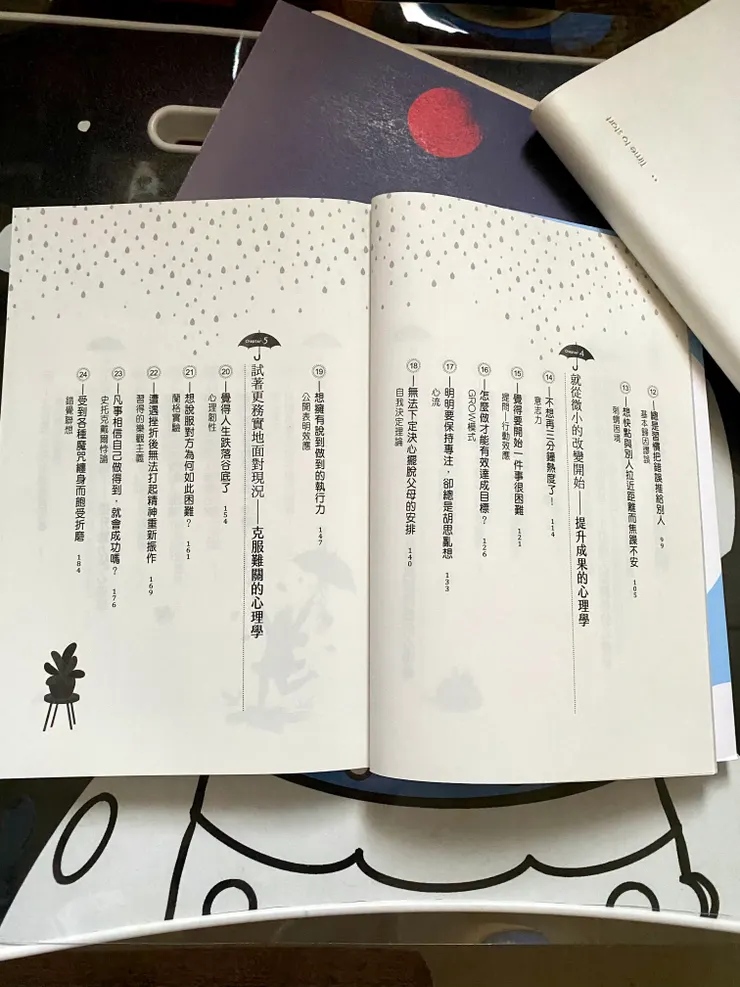 12 總是習慣把錯誤推給別人 99
基本歸因謬誤
13 想快點與別人拉近距離而焦躁不安 105
刺蝟困境
Chapter 4
就從微小的改變開始——提升成果的心理學
14 不想再三分鐘熱度了! 114
意志力
15 覺得要開始一件事很困難 121
提問—行動效應
16 怎麼做才能有效達成目標? 126
GROW模式
17 明明要保持專注,卻總是胡思亂想 133
心流
18 無法下定決心擺脫父母的安排 140
自我決定理論
19 想擁有說到做到的執行力 147
公開表明效應
Chapter 5
試著更務實地面對現況——克服難關的心理學
20 覺得人生跌落谷底了 154
心理韌性
21 想說服對方為何如此困難? 161
蘭格實驗
22 遭遇挫折後無法打起精神重新振作 169
習得的樂觀主義
23 凡事相信自己做得到,就會成功嗎? 176
史托克戴爾悖論
24 受到各種魔咒纏身而飽受折磨 184
錯覺聯想
Time to start